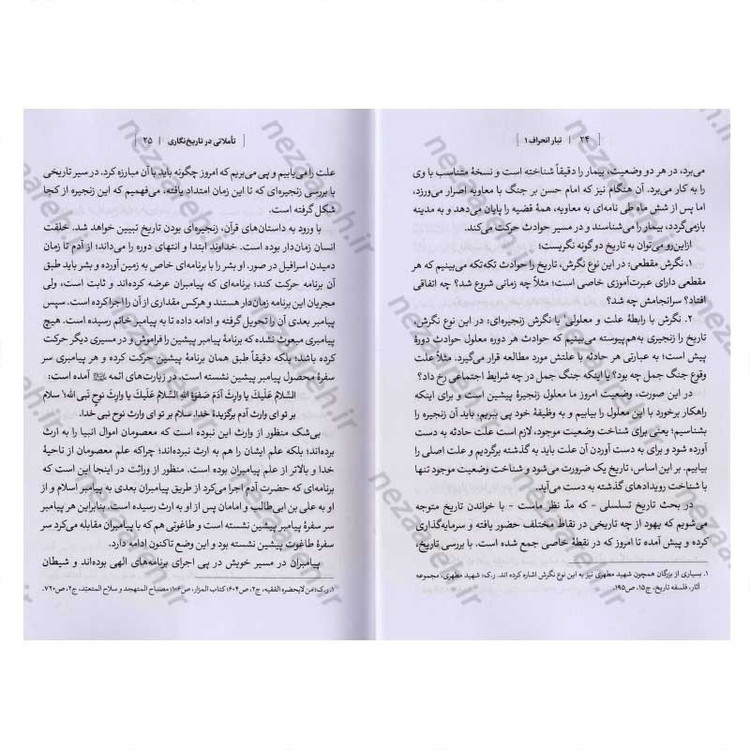 ۲۴ | تبار انحراف ۱
می‌برد، در هر دو وضعیت، بیمار را دقیقاً شناخته است و نسخهٔ متناسب با وی
را به کار می‌برد. آن هنگام نیز که امام حسن بر جنگ با معاویه اصرار می‌ورزد،
اما پس از شش ماه طی نامه‌ای به معاویه، همهٔ قضیه را پایان می‌دهد و به مدینه
بازمی‌گردد، بیمار را می‌شناسند و در مسیر حوادث حرکت می‌کند.
ازاین‌رو می‌توان به تاریخ دو گونه نگریست؛
۱. نگرش مقطعی: در این نوع نگرش، تاریخ را حوادث تکه‌تکه می‌بینیم که هر
مقطعی دارای عبرت‌آموزی خاصی است؛ مثلاً چه زمانی شروع شد؟ چه اتفاقی
افتاد؟ سرانجامش چه شد؟
۲. نگرش با رابطهٔ علت و معلولی یا نگرش زنجیره‌ای: در این نوع نگرش،
تاریخ را زنجیره‌ای به‌هم‌پیوسته می‌بینیم که حوادث هر دوره معلول حوادث دورهٔ
پیش است؛ به عبارتی هر حادثه با علتش مورد مطالعه قرار می‌گیرد. مثلاً علت
وقوع جنگ جمل چه بود؟ یا اینکه جنگ جمل در چه شرایط اجتماعی رخ داد؟
در این صورت، وضعیت امروز ما معلول زنجیرهٔ پیشین است و برای اینکه
راهکار برخورد با این معلول را بیابیم و به وظیفهٔ خود پی ببریم، باید آن زنجیره را
بشناسیم؛ یعنی برای شناخت وضعیت موجود، لازم است علت حادثه به دست
آورده شود و برای به دست آوردن آن علت باید به گذشته برگردیم و علت اصلی را
بیابیم. بر این اساس، تاریخ یک ضرورت می‌شود و شناخت وضعیت موجود تنها
با شناخت رویدادهای گذشته به دست می‌آید.
در بحث تاریخ تسلسلی - که مدّ نظر ماست - با خواندن تاریخ متوجه
می‌شویم که یهود از چه تاریخی در نقاط مختلف حضور یافته و سرمایه‌گذاری
کرده و پیش آمده تا امروز که در نقطهٔ خاصی جمع شده است. با بررسی تاریخ،
۱. بسیاری از بزرگان همچون شهید مطهری نیز به این نوع نگرش اشاره کرده اند. ر.ک: شهید مطهری، مجموعه
آثار، فلسفه تاریخ، ج۱۵، ص۱۹۵.
تأملاتی در تاریخ‌نگاری | ۲۵
علت را می‌یابیم و پی می‌بریم که امروز چگونه باید با آن مبارزه کرد. در سیر تاریخی
با بررسی زنجیره‌ای که تا این زمان امتداد یافته، می‌فهمیم که این زنجیره از کجا
شکل گرفته است.
با ورود به داستان‌های قرآن، زنجیره‌ای بودن تاریخ تبیین خواهد شد. خلقت
انسان زمان‌دار بوده است. خداوند ابتدا و انتهای دوره را می‌داند؛ از آدم تا زمان
دمیدن اسرافیل در صور. او بشر را با برنامه‌ای خاص به زمین آورده و بشر باید طبق
آن برنامه حرکت کند؛ برنامه‌ای که پیامبران عرضه کرده‌اند و ثابت است، ولی
مجریان این برنامه زمان‌دار هستند و هرکس مقداری از آن را اجرا کرده است. سپس
پیامبر بعدی آن را تحویل گرفته و ادامه داده تا به پیامبر خاتم رسیده است. هیچ
پیامبری مبعوث نشده که برنامهٔ پیامبر پیشین را فراموش و در مسیری دیگر حرکت
کرده باشد؛ بلکه دقیقاً طبق همان برنامهٔ پیشین حرکت کرده و هر پیامبری سر
سفرهٔ محصول پیامبر پیشین نشسته است. در زیارت‌های ائمه آمده است:
السَّلامُ عَلَیْكَ یا وارِثَ آدَمَ صَفْوَةِ اللهِ السَّلامُ عَلَیْكَ یا وارِثَ نوحٍ نَبِی اللهِ؛۱ سلام
بر تو ای وارث آدم برگزیدهٔ خدا، سلام بر تو ای وارث نوح نبی خدا.
بی‌شک منظور از وارث این نبوده است که معصومان اموال انبیا را به ارث
برده‌اند؛ بلکه علم ایشان را هم به ارث نبرده‌اند؛ چراکه علم معصومان از ناحیهٔ
خدا و بالاتر از علم پیامبران بوده است. منظور از وراثت در اینجا این است که
برنامه‌ای که حضرت آدم اجرا می‌کرد از طریق پیامبران بعدی به پیامبر اسلام و از
او به علی بن ابی‌طالب و امامان پس از او به ارث رسیده است. بنابراین هر پیامبر
سر سفرهٔ پیامبر پیشین نشسته است و طاغوتی هم که با پیامبران مقابله می‌کرد سر
سفرهٔ طاغوت پیشین نشسته بود و این وضع تاکنون ادامه دارد.
پیامبران در مسیر خویش در پی اجرای برنامه‌های الهی بوده‌اند و شیطان
۱. ر.ک: من لایحضره الفقیه، ج۲، ص۶۰۴؛ کتاب المزار، ص۱۰۶؛ مصباح المتهجد و سلاح المتعبّد، ج۲، ص۷۲۰.
nezaaleh.ir